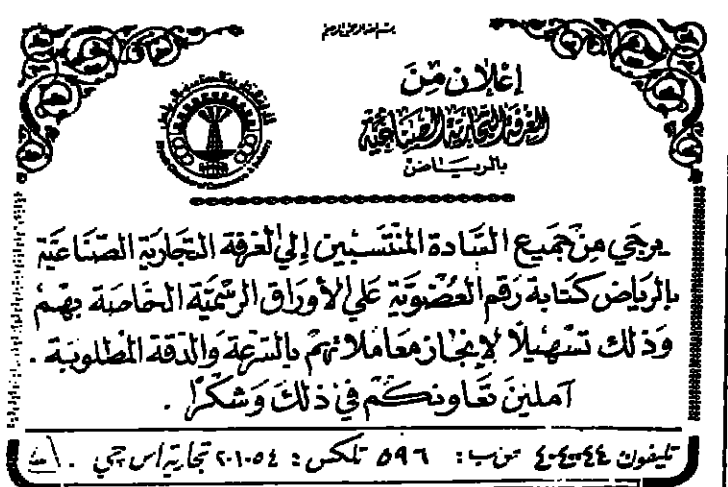 بسم الله الرحمن الرحيم
إعلان من
الغرفة التجارية الصناعية
بالرياض
يرجى من جميع السادة المنتسبين إلى الغرفة التجارية الصناعية
بالرياض كتابة رقم العضوية على الأوراق الرسمية الخاصة بهم
وذلك تسهيلاً لإنجاز معاملاتهم بالسرعة والدقة المطلوبة .
آملين تعاونكم في ذلك وشكراً .
تليفون ٤٠٤٠٠٤٤ ص.ب: ٥٩٦ تلكس: ٢٠١٠٥٤ تجارية اس جي .